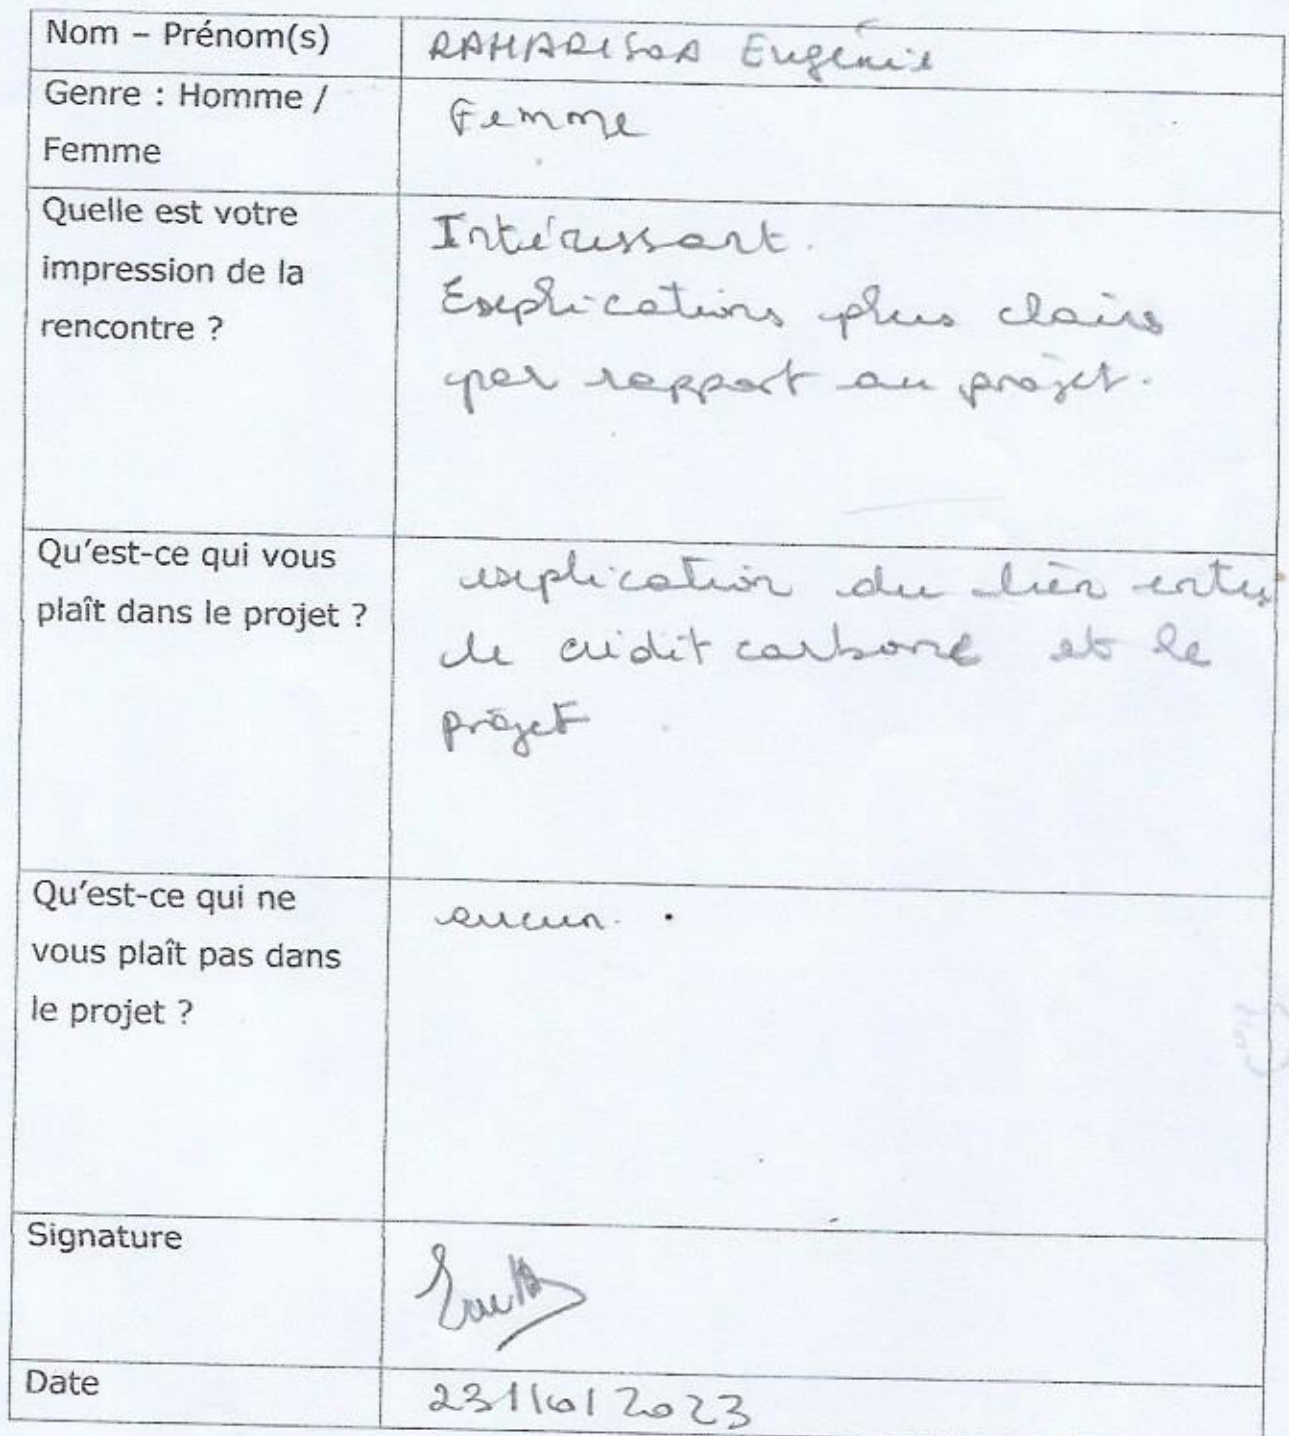 Nom – Prénom(s)
RAHARISOA Eugénie
Genre : Homme /
Femme
Femme
Quelle est votre
impression de la
rencontre ?
Intéressant.
Explications plus clairs
par rapport au projet.
Qu'est-ce qui vous
plaît dans le projet ?
explication du lien entre
le crédit carbone et le
projet
Qu'est-ce qui ne
vous plaît pas dans
le projet ?
aucun.
Signature
Date
23/10/2023